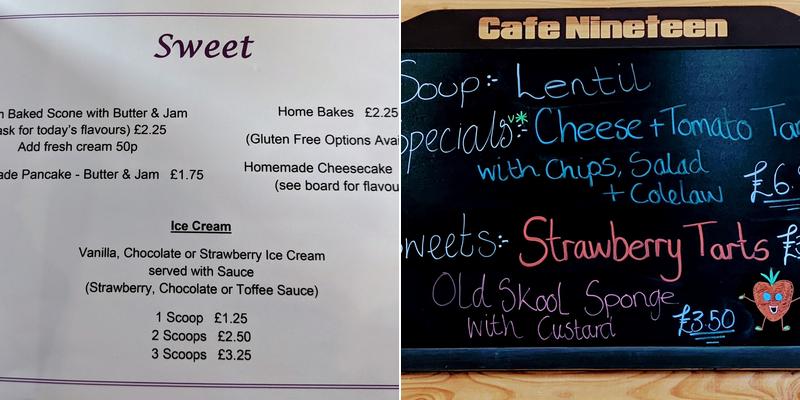 Sweet
Baked Scone with Butter & Jam
ask for today's flavours) £2.25
Add fresh cream 50p
Pancake - Butter & Jam £1.75
Home Bakes £2.25
(Gluten Free Options
Homemade Cheesecake
(see board for
Ice Cream
Vanilla, Chocolate or Strawberry Ice Cream
served with Sauce
(Strawberry, Chocolate or Toffee Sauce)
1 Scoop £1.25
2 Scoops £2.50
3 Scoops £3.25
Cafe Nineteen
Soup:- Lentil
Specials:- v* Cheese + Tomato
with Chips, Salad
+ Colelaw
Sweets:- Strawberry Tarts
Old Skool Sponge
With Custard £3.50